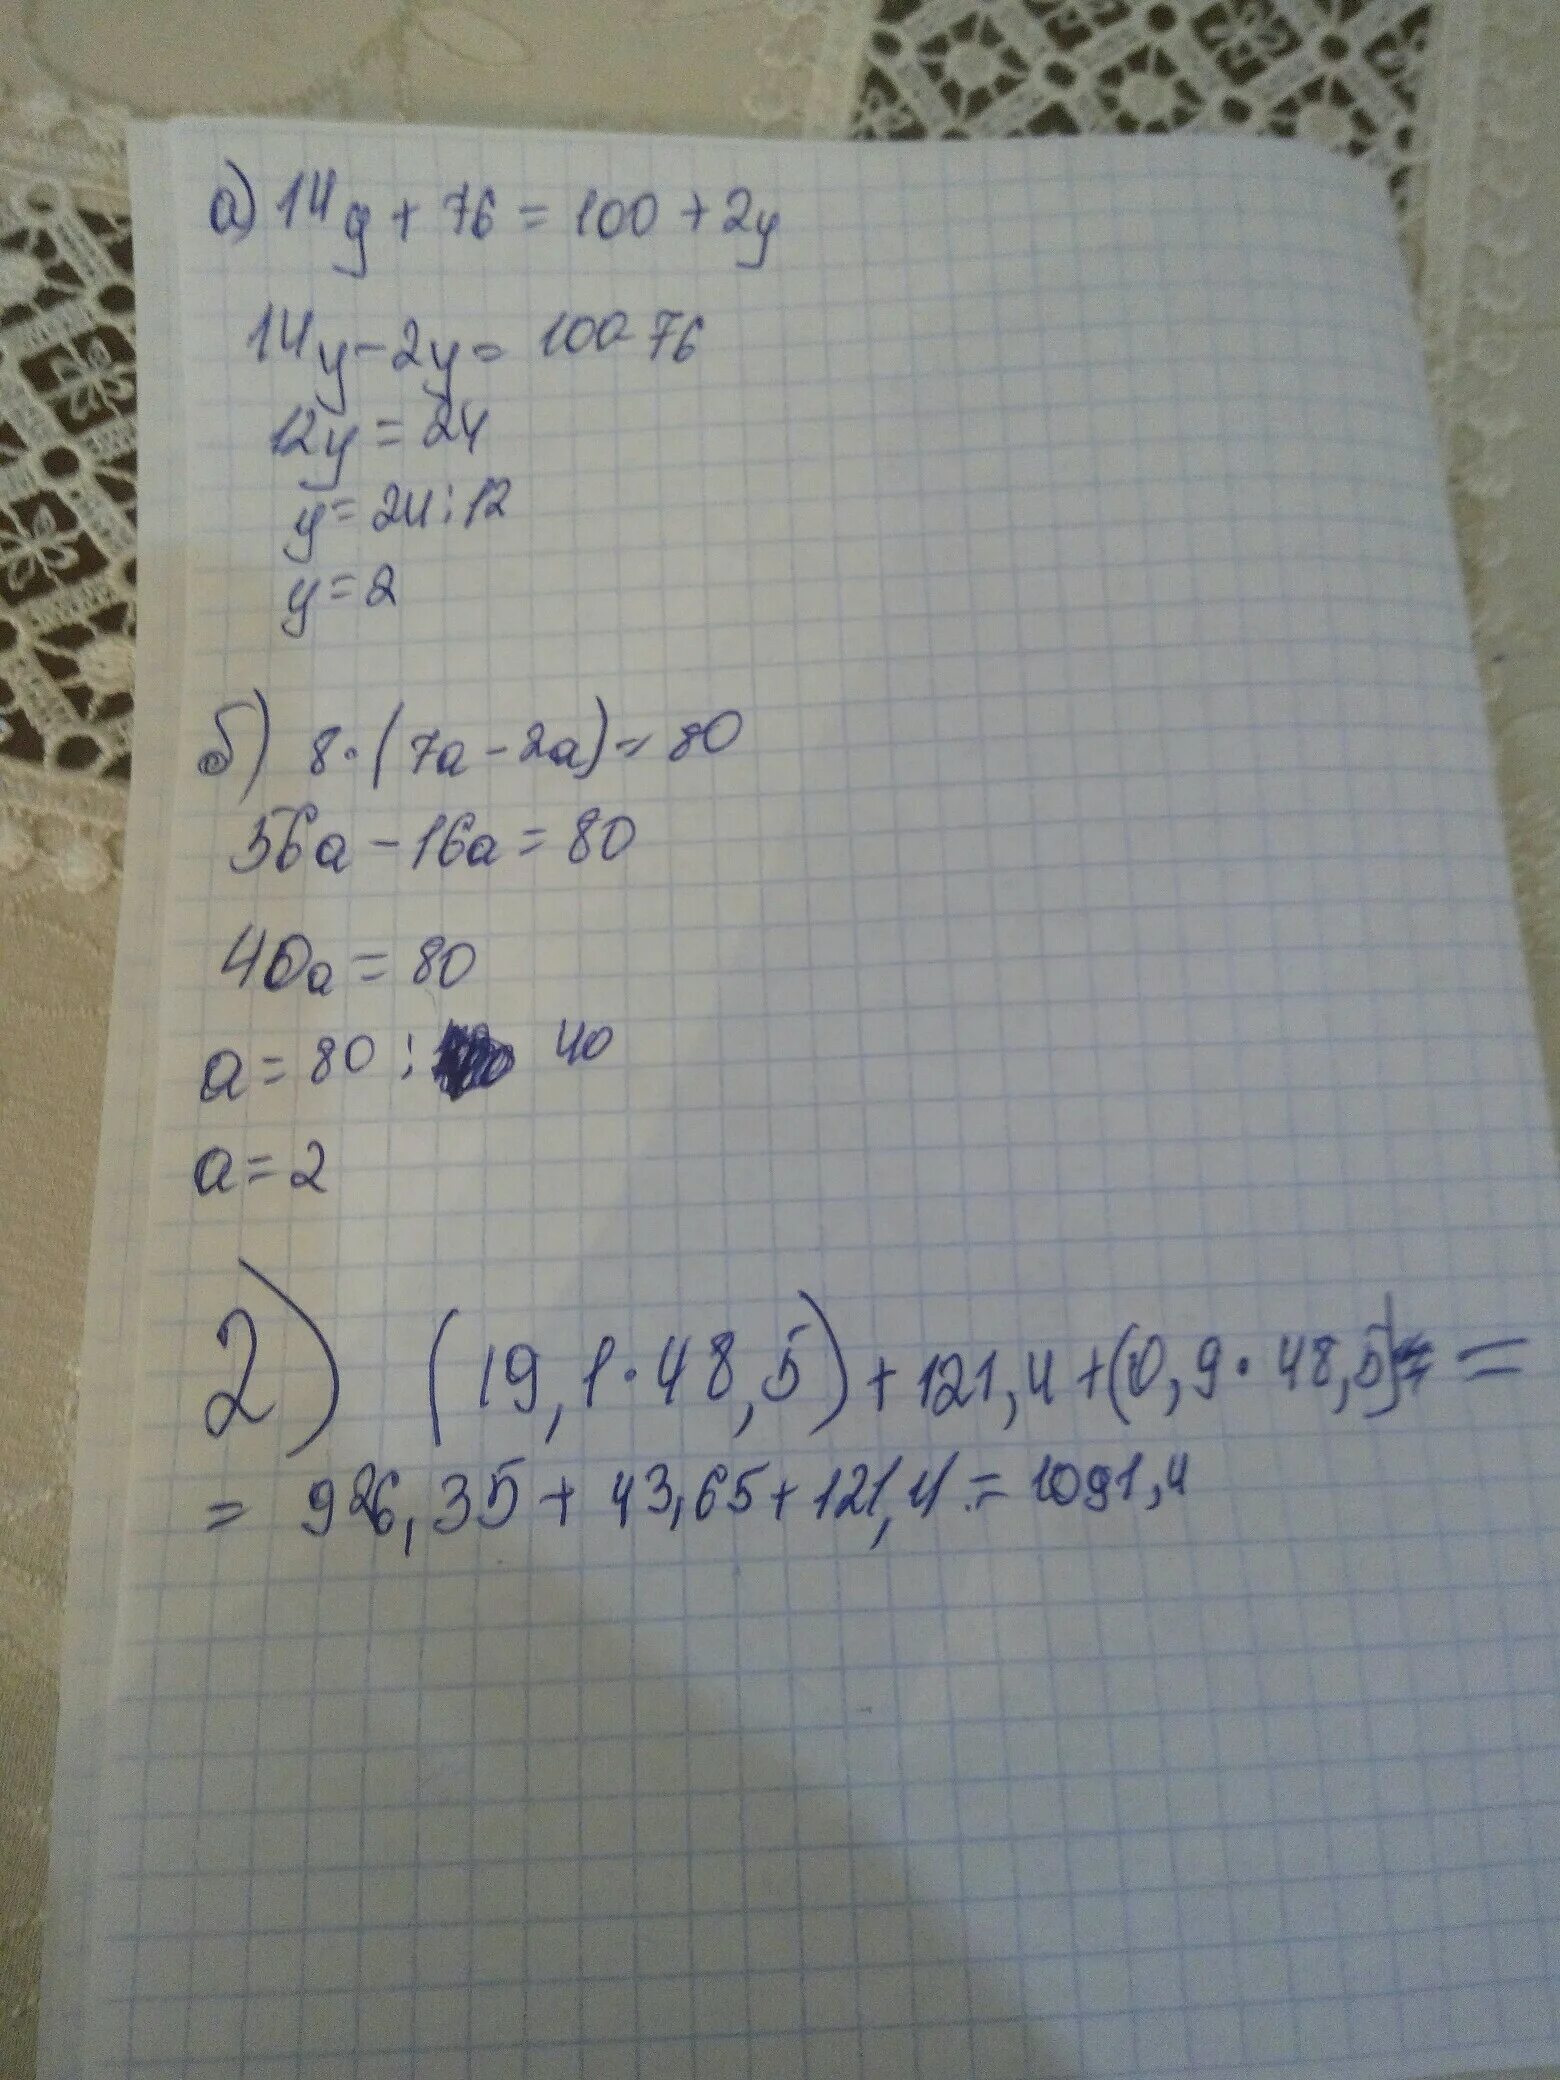 а) 14y + 76 = 100 + 2y
14y - 2y = 100-76
12y = 24
y = 24 : 12
y = 2
б) 8·(7a - 2a) = 80
56a - 16a = 80
40a = 80
a = 80 : 40
a = 2
2) (19,1·48,5) + 121,4 + (0,9·48,5) =
= 926,35 + 43,65 + 121,4 = 1091,4